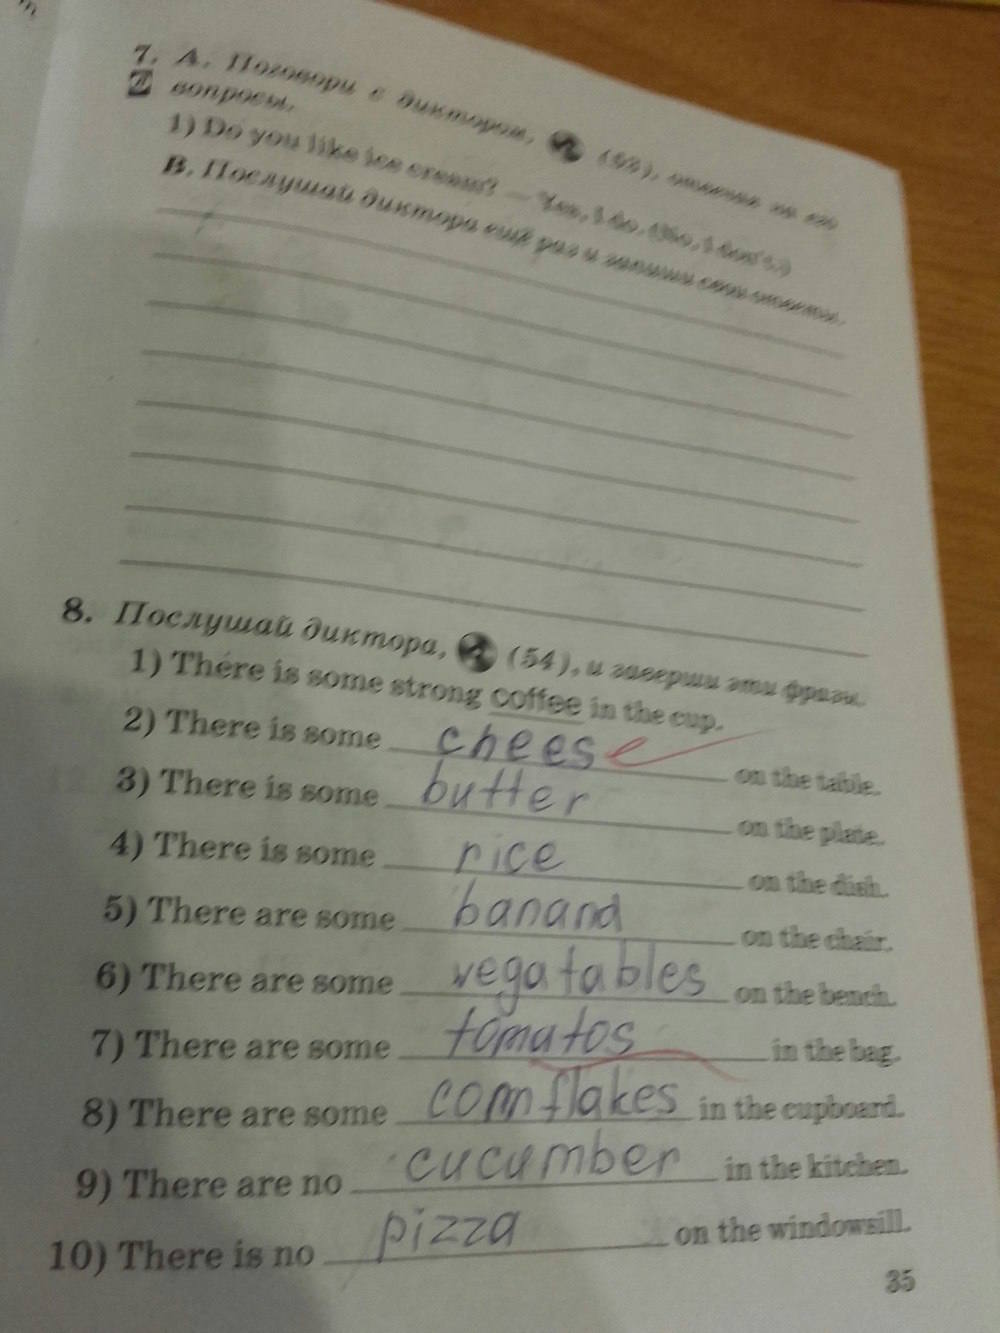 7. А. Поговори с диктором, (53), отвечая на его
вопросы.
1) Do you like ice cream? — Yes, I do. (No, I don't.)
В. Послушай диктора ещё раз и запиши свои ответы.
8. Послушай диктора, (54), и заверши эти фразы.
1) There is some strong coffee in the cup.
2) There is some cheese on the table.
3) There is some butter on the plate.
4) There is some rice on the dish.
5) There are some banand on the chair.
6) There are some vegatables on the bench.
7) There are some tomatos in the bag.
8) There are some cornflakes in the cupboard.
9) There are no cucumber in the kitchen.
10) There is no pizza on the windowsill.
35